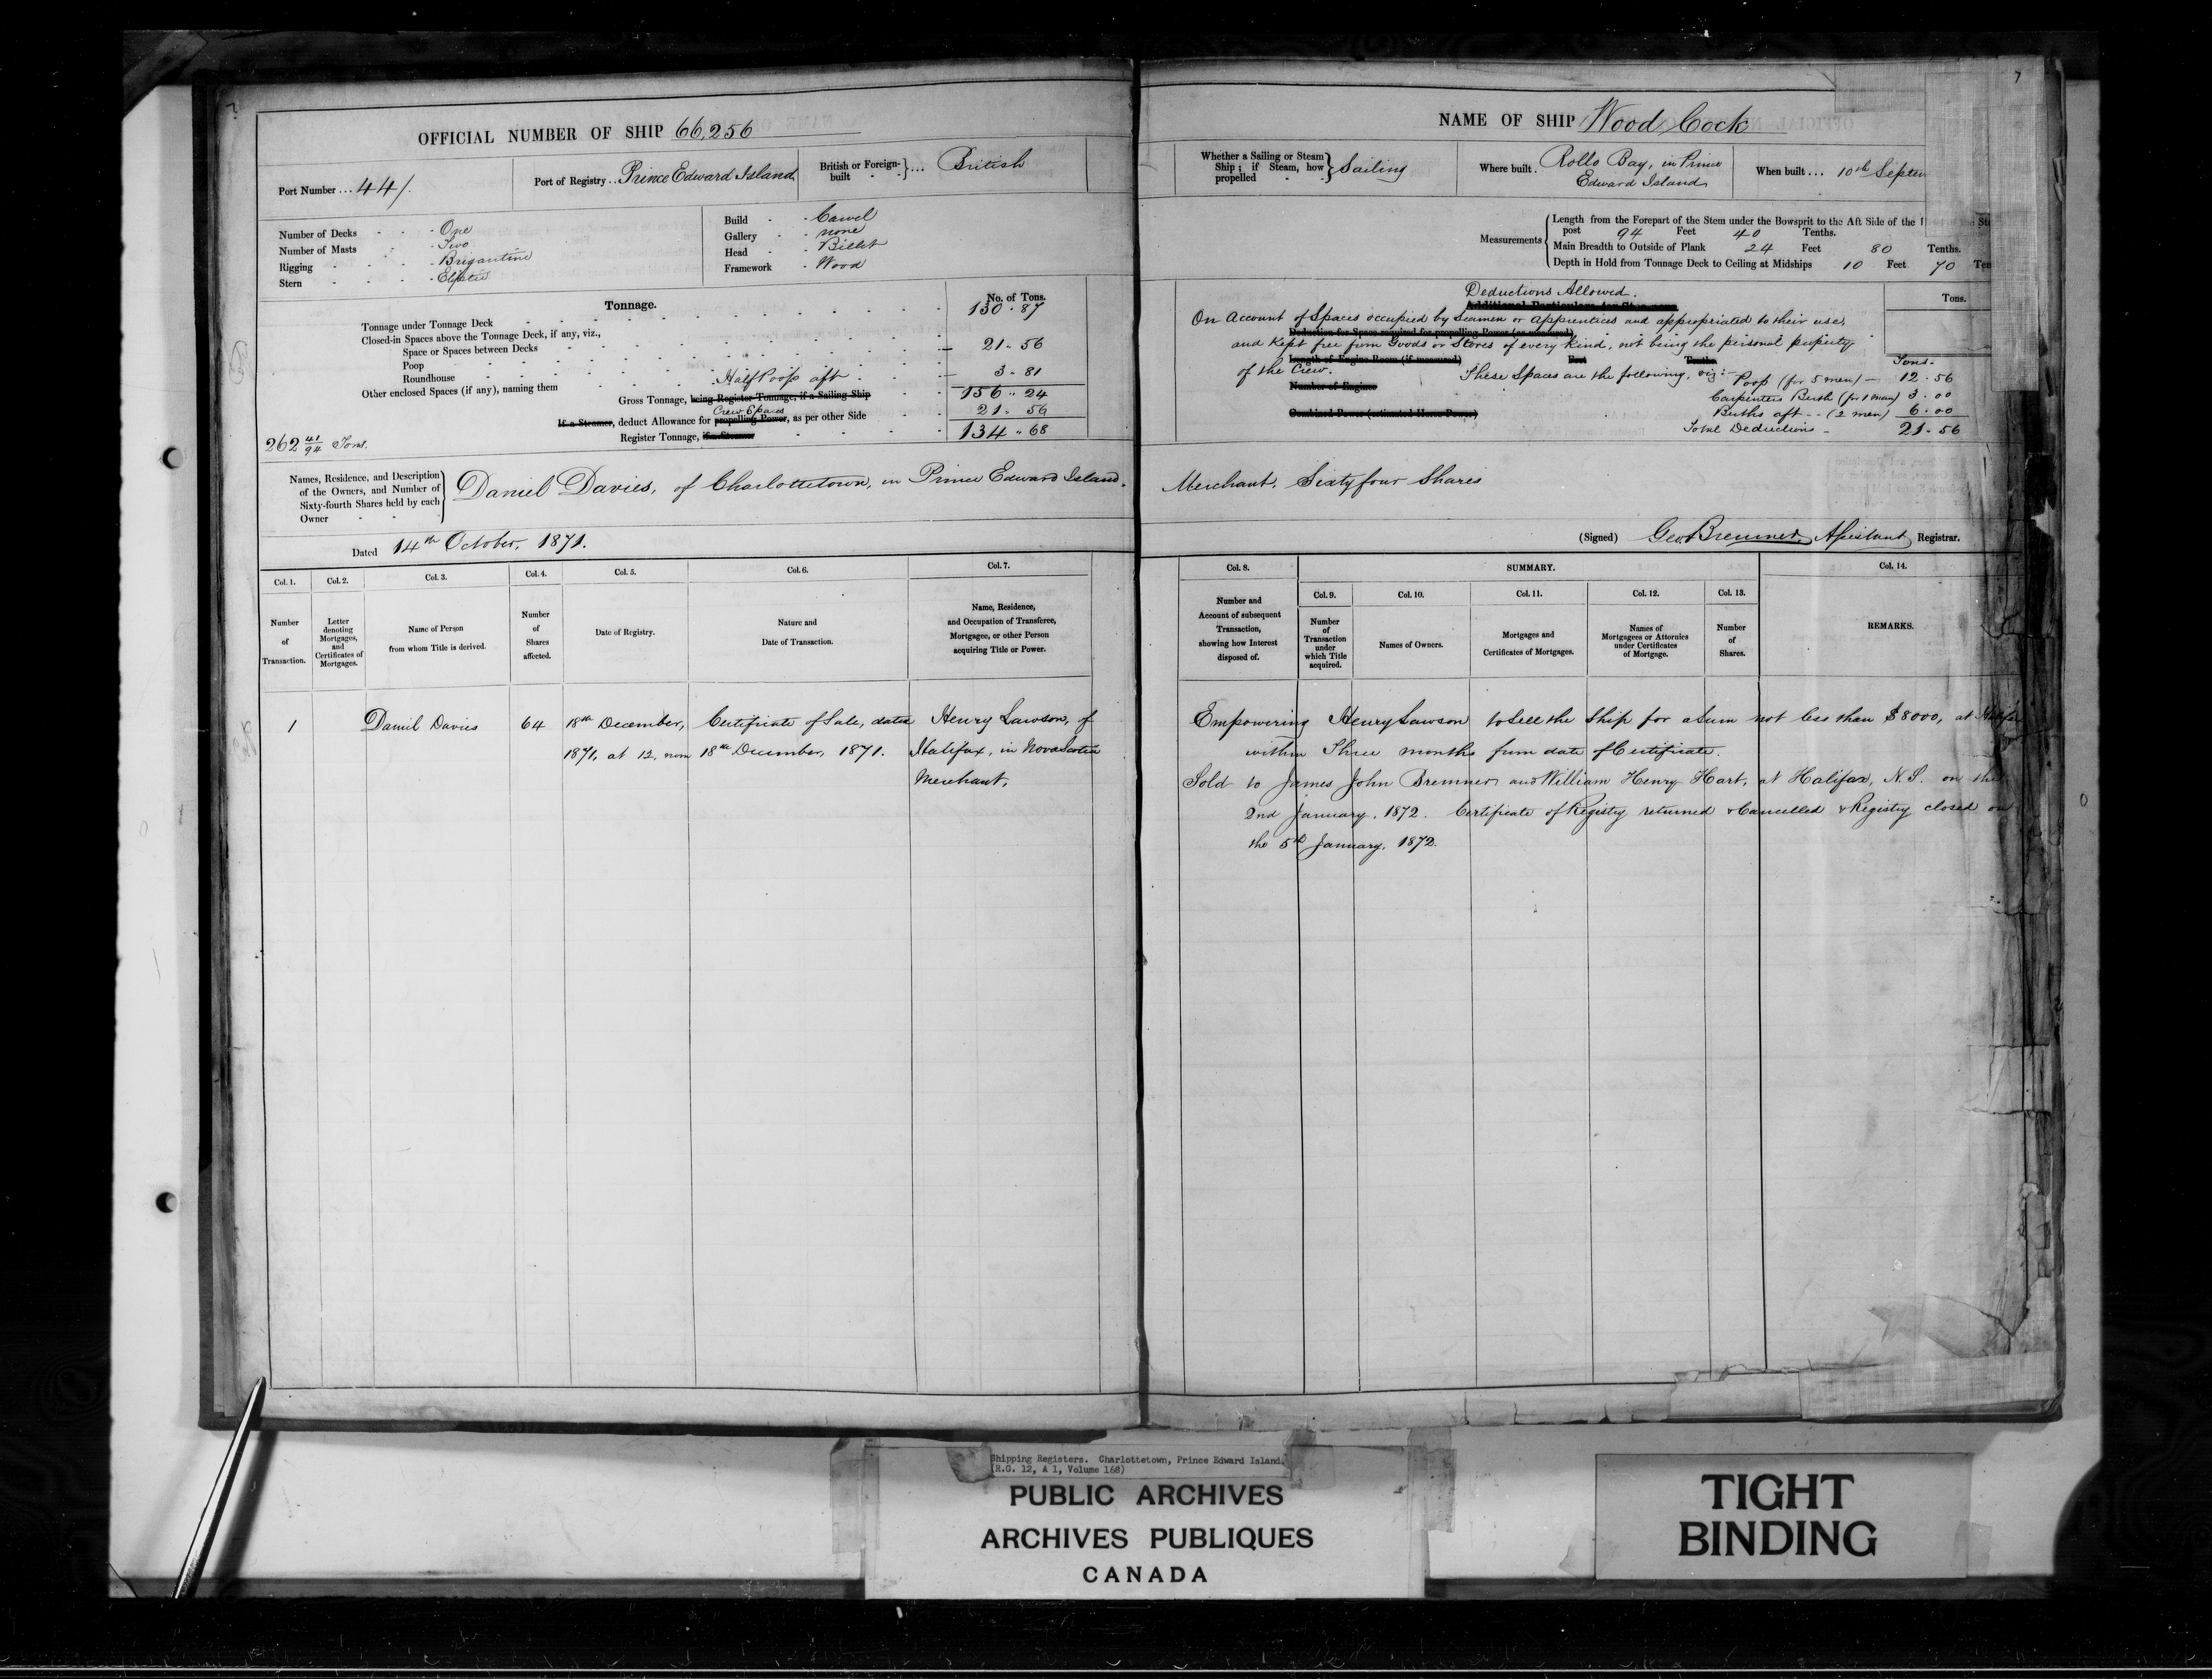 7
OFFICIAL NUMBER OF SHIP 66,256
Port Number ... 44/.
Port of Registry ... Prince Edward Island
British or Foreign-built - - } ... British
Number of Decks - - - One
Number of Masts - - Two
Rigging - - - - Brigantine
Stern - - - -
Build - - Carvel
Gallery - - none
Head - - Billet
Framework - Wood
Tonnage.
No. of Tons.
Tonnage under Tonnage Deck 130 . 87
Closed-in Spaces above the Tonnage Deck, if any, viz.,
Space or Spaces between Decks
Poop 21 . 56
Roundhouse
Other enclosed Spaces (if any), naming them Half Poop aft 3 . 81
Gross Tonnage, being Register Tonnage, if a Sailing Ship 156 .. 24
Crew Spaces
If a Steamer, deduct Allowance for propelling Power, as per other Side 21 . 56
Register Tonnage, if a Steamer 134 .. 68
262 41/94 Tons.
Names, Residence, and Description of the Owners, and Number of Sixty-fourth Shares held by each Owner - -
Daniel Davies, of Charlottetown, in Prince Edward Island.
Dated 14th October, 1871.
Col. 1. Col. 2. Col. 3. Col. 4. Col. 5. Col. 6. Col. 7.
Number of Transaction.
Letter denoting Mortgages, and Certificates of Mortgages.
Name of Person from whom Title is derived.
Number of Shares affected.
Date of Registry.
Nature and Date of Transaction.
Name, Residence, and Occupation of Transferee, Mortgagee, or other Person acquiring Title or Power.
1 Daniel Davies 64 18th December, Certificate of Sale, dated Henry Lawson, of
1871, at 12, noon 18th December, 1871. Halifax, in Nova Scotia
Merchant,
7
NAME OF SHIP Wood Cock
Whether a Sailing or Steam Ship; if Steam, how propelled - } Sailing
Where built . Rollo Bay, in Prince
Edward Island
When built ... 10th Septem
Measurements
Length from the Forepart of the Stem under the Bowsprit to the Aft Side of the
post 94 Feet 40 Tenths.
Main Breadth to Outside of Plank 24 Feet 80 Tenths.
Depth in Hold from Tonnage Deck to Ceiling at Midships 10 Feet 70 Ten
Deductions Allowed.
Additional Particulars for Steamers.
Tons.
On Account of Spaces occupied by Seamen or Apprentices and appropriated to their use,
Deduction for Space required for propelling Power (as measured)
and kept free from Goods or Stores of every kind, not being the personal property
Length of Engine Room (if measured) Feet Tenths
of the Crew. These Spaces are the following, viz:-
Number of Engines
Combined Power (estimated Horse Power)
Tons.
Poop (for 5 men) - 12 . 56
Carpenters Berth (for 1 man) 3 . 00
Berths aft - - (2 men) 6 . 00
Total Deductions - 21 . 56
Merchant, Sixty four Shares
(Signed) Geo. Bremner, Assistant Registrar.
Col. 8. SUMMARY. Col. 14.
Col. 9. Col. 10. Col. 11. Col. 12. Col. 13.
Number and Account of subsequent Transaction, showing how Interest disposed of.
Number of Transaction under which Title acquired.
Names of Owners.
Mortgages and Certificates of Mortgages.
Names of Mortgagees or Attornies under Certificates of Mortgage.
Number of Shares.
REMARKS.
Empowering Henry Lawson to Sell the Ship for a Sum not less than $8000, at Halifax
within Three months from date of Certificate.
Sold to James John Bremner and William Henry Hart, at Halifax, N.S. on the
2nd January, 1872. Certificate of Registry returned & Cancelled & Registry closed on
the 5th January, 1872.
Shipping Registers. Charlottetown, Prince Edward Island.
(R.G. 12, A 1, Volume 168)
PUBLIC ARCHIVES
ARCHIVES PUBLIQUES
CANADA
TIGHT
BINDING